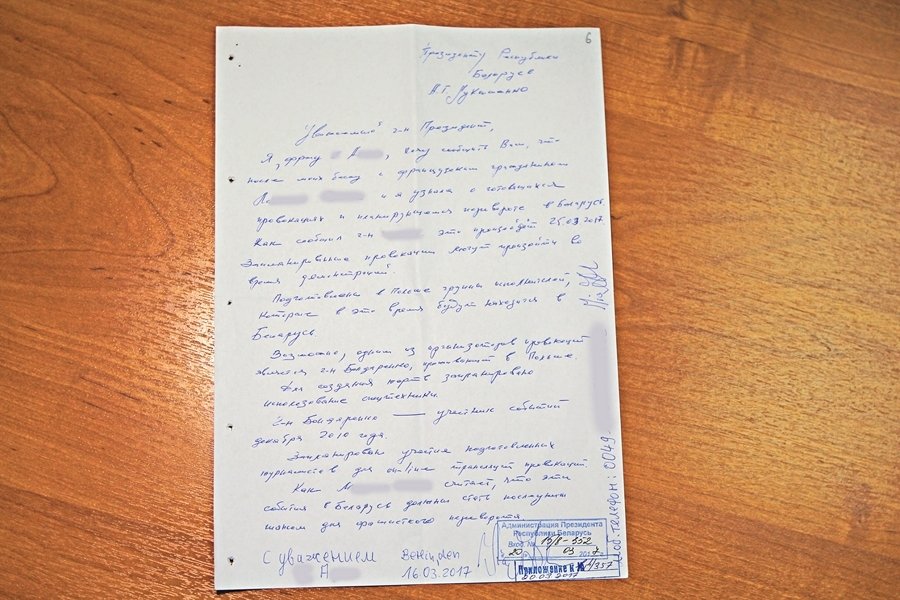 6
Президенту Республики
Беларусь
А.Г. Лукашенко
Уважаемый г-н Президент,
Я, фрау А , хочу сообщить Вам, что
после моих бесед с французским гражданином
Ло и я узнала о готовящихся
провокациях и планирующемся перевороте в Беларусь.
Как сообщил г-н это произойдёт 25.03.2017.
Запланированные провокации могут произойти во
время демонстраций.
Подготовлены в Польше группы исполнителей,
которые в это время будут находится в
Беларусь.
Возможно, одним из организаторов провокаций
является г-н Бондаренко, проживающий в Польше.
Для создания жертв запланировано
использование спецтехники.
г-н Бондаренко — участник событий
декабря 2010 года.
Запланировано участие подготовленных
журналистов для on-line трансляции провокаций
Как М считает, что эти
события в Беларусь должны стать последним
шагом для фашистского переворота
С уважением
А
16.03.2017
Администрация Президента
Республики Беларусь
Вход. № 19/8-552
20 03 2017 г.
Приложение к №
20 03 2017
моб. телефон: 0049